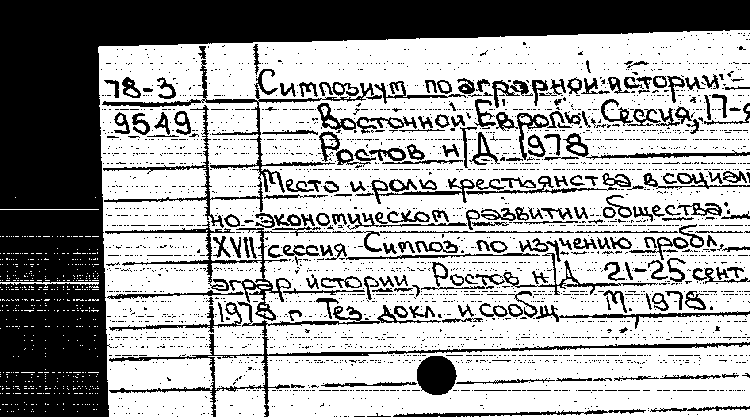 78-3 Симпозиум по аграрной истории
9549 Восточной Европы. Сессия, 17-я
Ростов н/Д 1978
Место и роль крестьянства в социаль
но-экономическом развитии общества:
XVII сессия Симпоз. по изучению пробл.
аграр. истории, Ростов н/Д, 21-25 сент.
1978 г. Тез. докл. и сообщ. М., 1978.